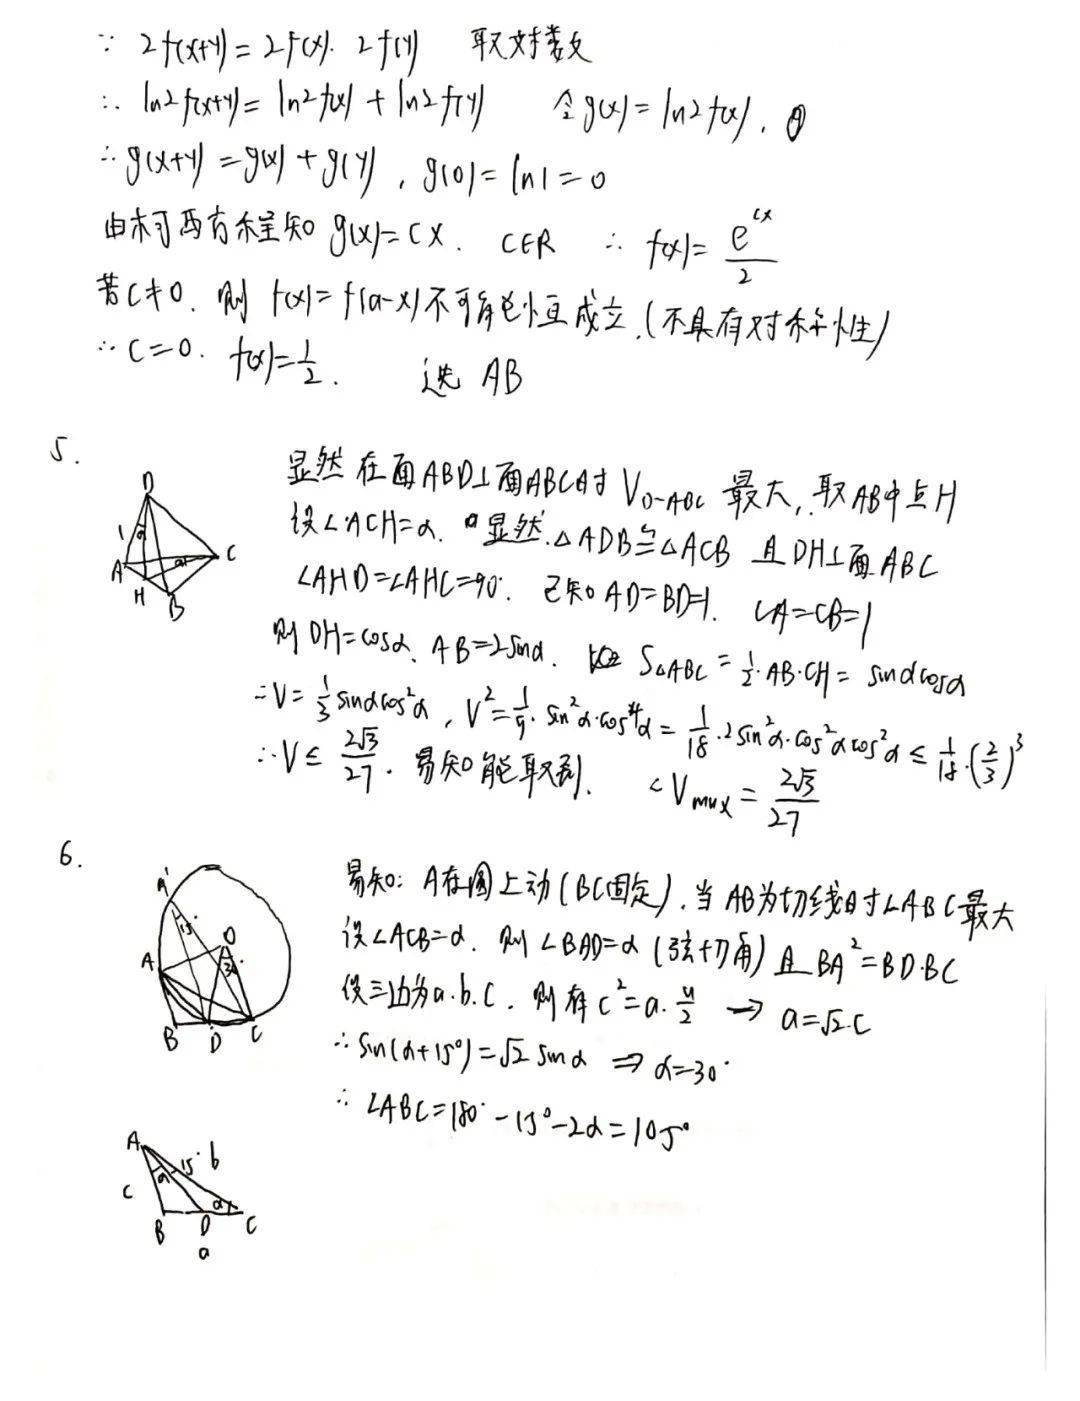 ∵ 2f(x+y)=2f(x)·2f(y) 取对数
∴ ln2f(x+y)=ln2f(x)+ln2f(y) 令g(x)=ln2f(x),
∴ g(x+y)=g(x)+g(y), g(0)=ln1=0
由柯西方程知 g(x)=Cx. C∈R ∴ f(x)=e^{cx}/2
若C≠0. 则 f(x)=f(a-x)不可能恒成立.(不具有对称性)
∴ C=0. f(x)=1/2. 选 AB
5.
D
1
α
A
C
α
H
B
显然 在面ABD⊥面ABC时 V_{D-ABC} 最大, 取AB中点H
设∠ACH=α. 显然.△ADB≌△ACB 且 DH⊥面ABC
∠AHD=∠AHC=90°. 已知 AD=BD=1. CA=CB=1
则 DH=cosα. AB=2sinα. S△ABC=1/2·AB·CH=sinαcosα
∴V=1/3 sinαcos²α, V²=1/9·sin²α·cos⁴α=1/18·2sin²α·cos²αcos²α≤1/18·(2/3)³
∴V≤2√3/27. 易知能取到. ∴V_{max}=2√3/27
6.
A'
15°
O
30°
A
B D C
易知: A在圆上动(BC固定). 当 AB为切线时∠ABC最大
设∠ACB=α. 则 ∠BAD=α (弦切角) 且 BA²=BD·BC
设三边为a.b.c. 则有 c²=a·a/2 → a=√2·c
∴ sin(α+15°)=√2 sinα ⇒ α=30°
∴ ∠ABC=180°-15°-2α=105°
A
α 15° b
c
α
B D C
a